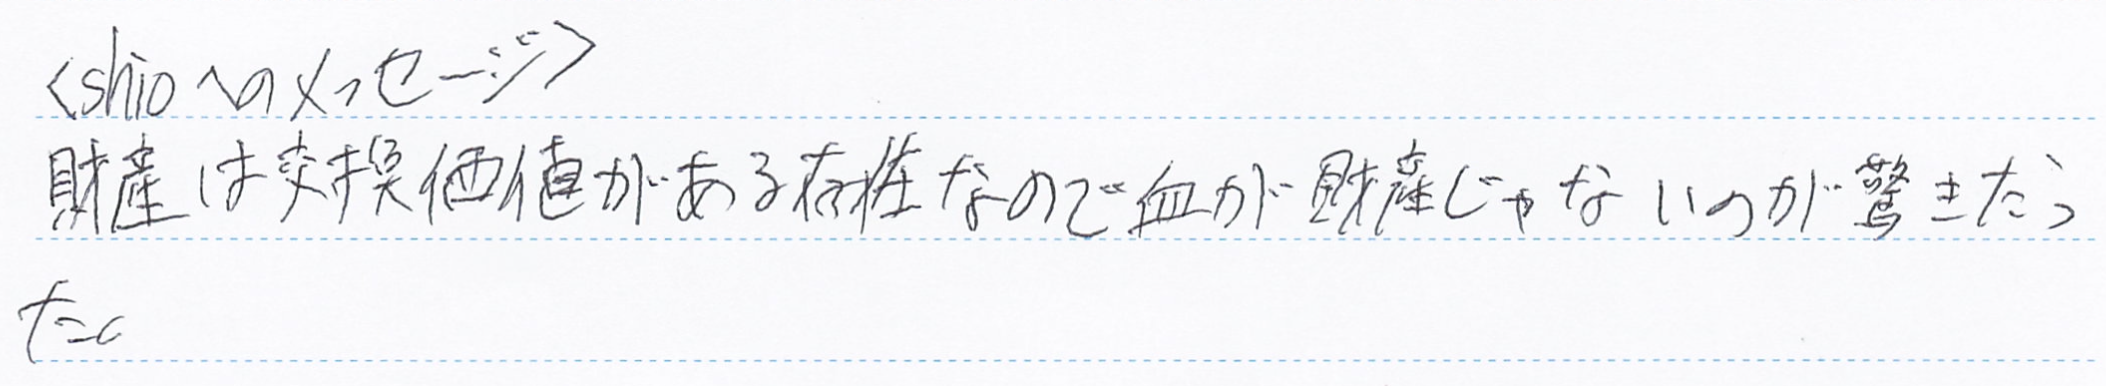 <shioへのメッセージ>
財産は交換価値がある存在なので血が財産じゃないのが驚きだっ
た。